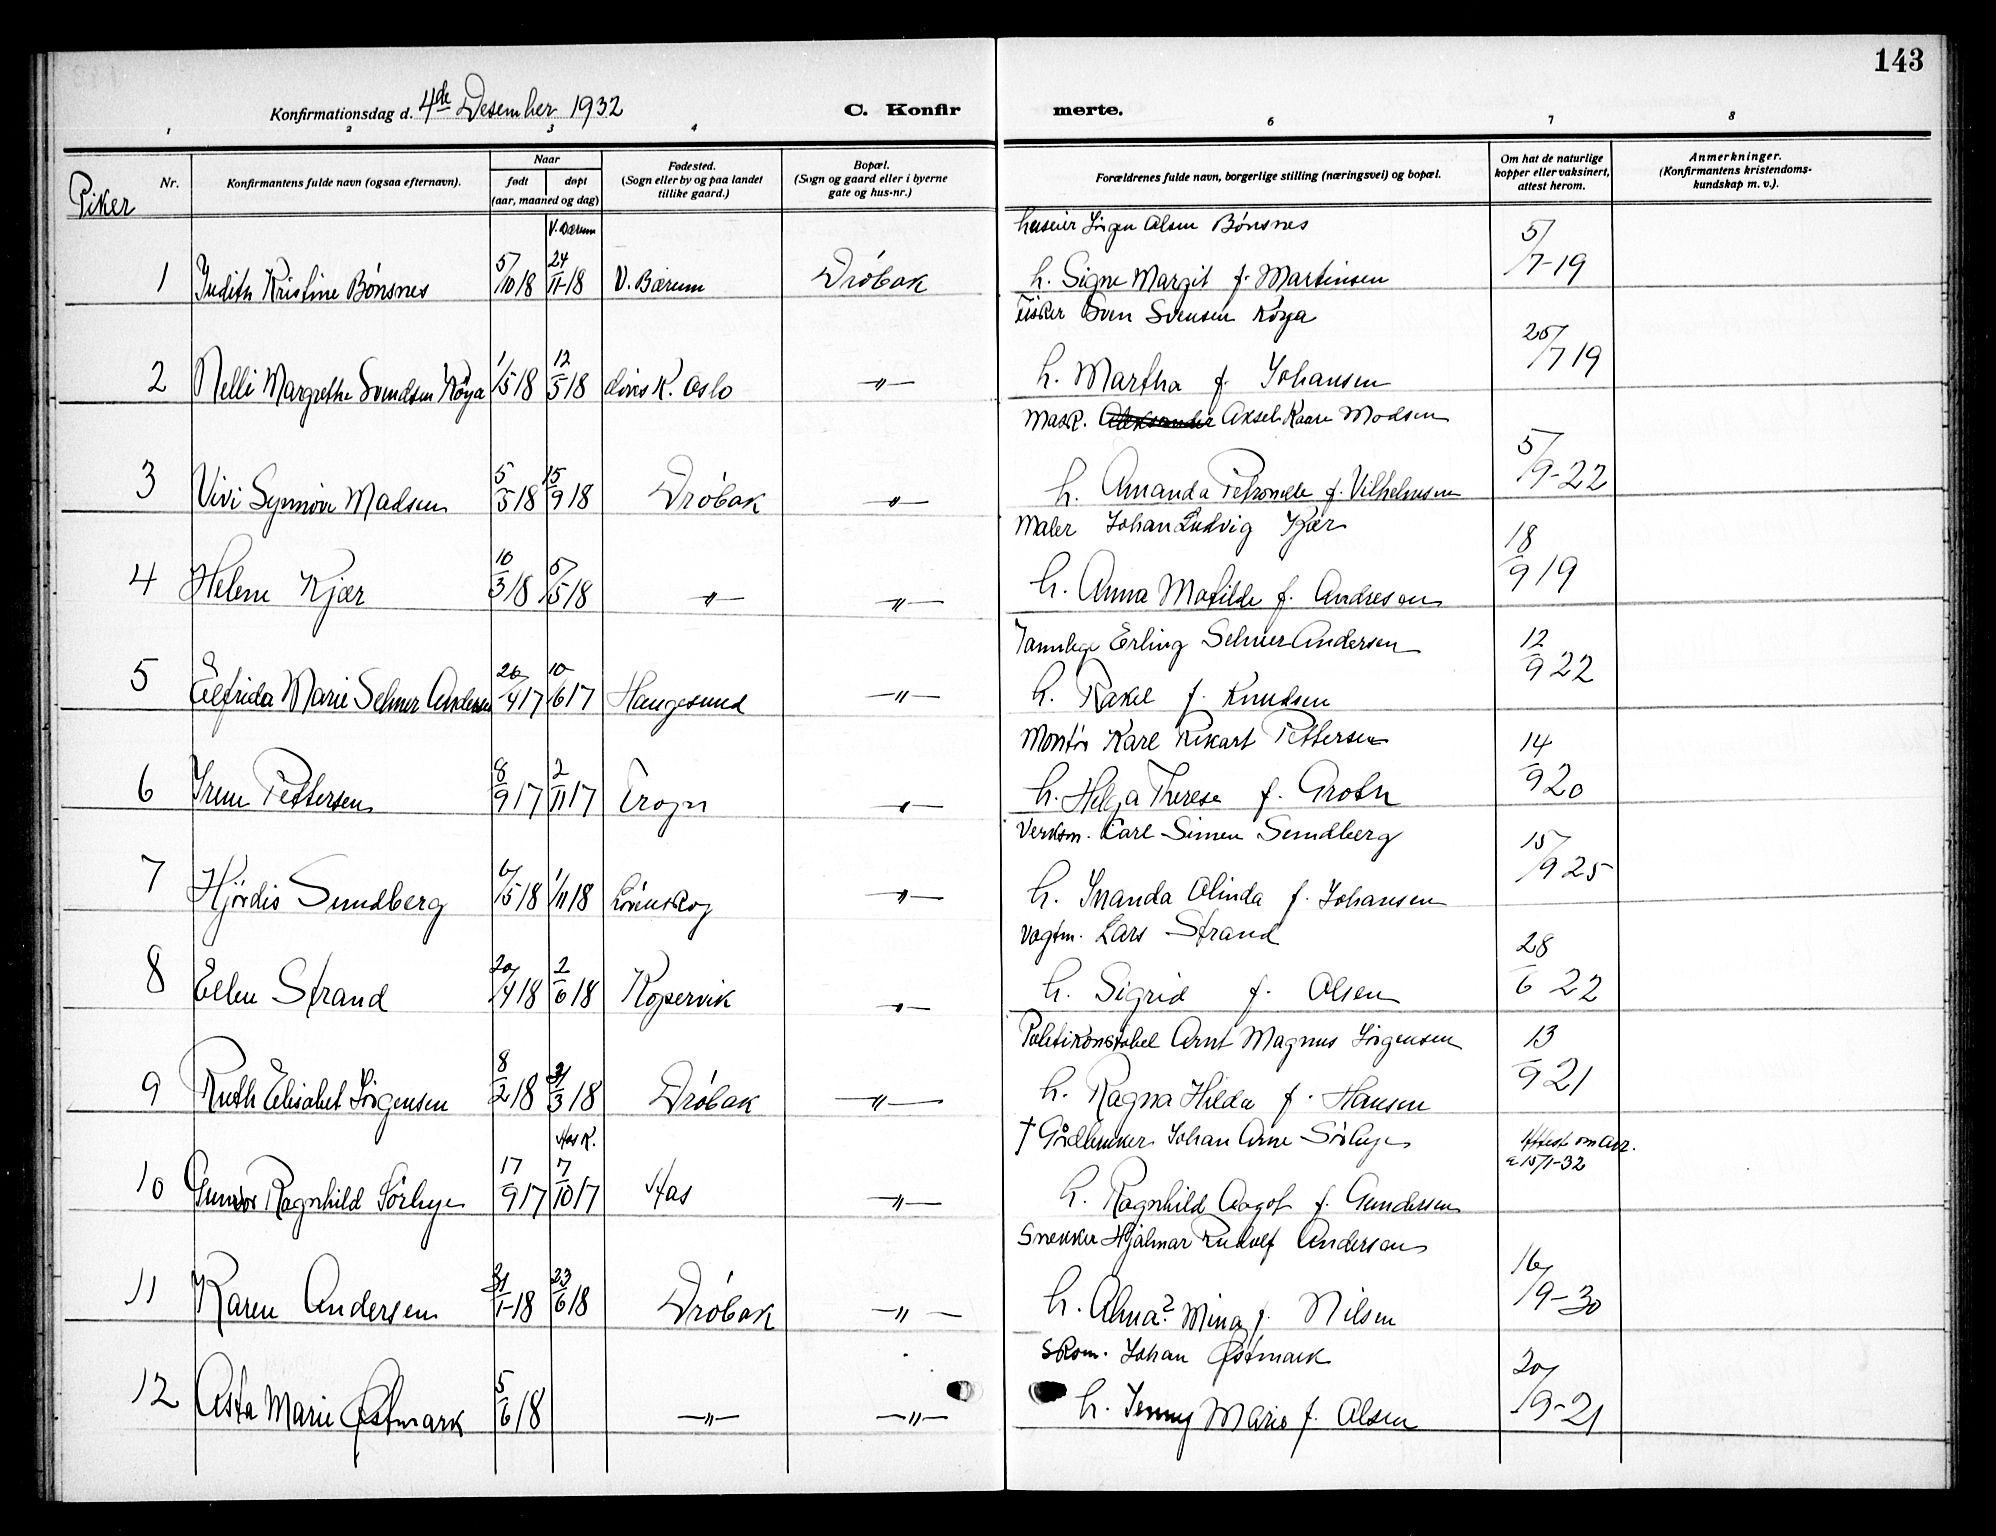 143
Konfirmationsdag d. 4de Desember 1932
C. Konfirmerte.
1 2 3 4 6 7 8
Piker
Nr.
Konfirmantens fulde navn (ogsaa efternavn).
Naar
født døpt
(aar, maaned og dag)
Fødested.
(Sogn eller by og paa landet
tillike gaard.)
Bopæl.
(Sogn og gaard eller i byerne
gate og hus-nr.)
Forældrenes fulde navn, borgerlige stilling (næringsvei) og bopæl.
Om hat de naturlige
kopper eller vaksinert,
attest herom.
Anmerkninger.
(Konfirmantens kristendoms-
kundskap m. v.).
V. Bærum huseier Jörgen Olsen Bónsnes
1 Judith Kristine Bónsnes 5/10 18 24/11-18 V. Bærum Dröbak h. Signe Margit f. Martinsen 5/7-19
Fisker Sven Svensen Köya
2 Nelli Margrethe Svendsen Köya 1/5 18 12/5 18 K. Oslo -"- h. Martha f. Johansen 25/7 19
Mask. Aleksander Aksel Kaare Madsen
3 Vivi Synnöve Madsen 5/5 18 15/9 18 Dröbak -"- h. Amanda Petronelle f. Vilhelmsen 5/9-22
Maler Johan Ludvig Kjær
4 Helene Kjær 10/3 18 5/5 18 -"- -"- h. Anna Matilde f. Andresen 18/9 19
Tannlege Erling Selmer Andersen
5 Elfrida Marie Selmer Andersen 26/4 17 10/6 17 Haugesund -"- h. Rakel f. Knudsen 12/9 22
Montör Karl Rikart Pettersen
6 Irene Pettersen 8/9 17 2/11 17 Frogn -"- h. Helga Therese f. Grotn 14/9 20
Verksm. Carl Simen Sundberg
7 Hjördis Sundberg 6/5 18 1/11 18 Lörenskog -"- h. Inanda Olinda f. Johansen 15/9 25
Vagtm. Lars Strand
8 Ellen Strand 20/4 18 2/6 18 Kopervik -"- h. Sigrid f. Olsen 28/6 22
Politikonstabel Arnt Magnus Jörgensen
9 Ruth Elisabet Jörgensen 8/2 18 31/3 18 Dröbak -"- h. Ragna Hilda f. Hansen 13/9 21
Aas K. † Gårdbruker Johan Arne Sörbye Attest om
a 15/1-32
10 Gunvor Ragnhild Sörbye 17/9 17 7/10 17 Aas -"- h. Ragnhild Aagot f. Gundersen
Snekker Hjalmar Rudolf Andersen
11 Karen Andersen 31/1-18 23/6 18 Dröbak -"- h. Alma? Mina f. Nilsen 16/9-30
Skom. Johan Østmark
12 Asta Marie Østmark 5/6 18 -"- -"- h. Jenny Marie f. Olsen 20/9-21